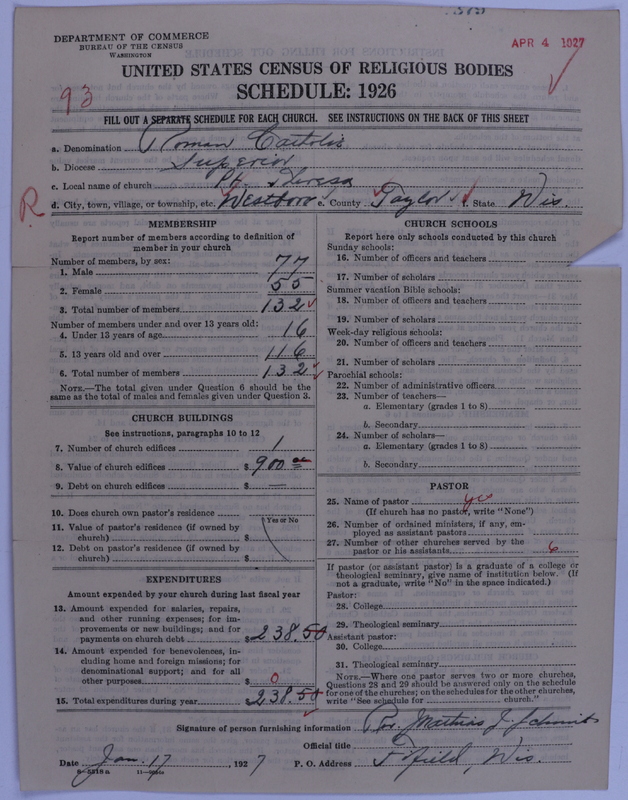 DEPARTMENT OF COMMERCE
BUREAU OF THE CENSUS
WASHINGTON
APR 4 1927
UNITED STATES CENSUS OF RELIGIOUS BODIES
SCHEDULE: 1926
93
FILL OUT A SEPARATE SCHEDULE FOR EACH CHURCH. SEE INSTRUCTIONS ON THE BACK OF THIS SHEET
a. Denomination Roman Catholic
b. Diocese Superior
c. Local name of church St. Theresa
R
d. City, town, village, or township, etc. Westboro e. County Taylor f. State Wis.
MEMBERSHIP
Report number of members according to definition of
member in your church
Number of members, by sex:
1. Male 77
2. Female 55
3. Total number of members 132
Number of members under and over 13 years old:
4. Under 13 years of age 16
5. 13 years old and over 116
6. Total number of members 132
NOTE.—The total given under Question 6 should be the
same as the total of males and females given under Question 3.
CHURCH BUILDINGS
See instructions, paragraphs 10 to 12
7. Number of church edifices 1
8. Value of church edifices $ 900.00
9. Debt on church edifices $ —
10. Does church own pastor's residence
Yes or No
11. Value of pastor's residence (if owned by
church) $
12. Debt on pastor's residence (if owned by
church) $
EXPENDITURES
Amount expended by your church during last fiscal year
13. Amount expended for salaries, repairs,
and other running expenses; for im-
provements or new buildings; and for
payments on church debt $ 238.50
14. Amount expended for benevolences, in-
cluding home and foreign missions; for
denominational support; and for all
other purposes $ 0
15. Total expenditures during year $ 238.50
CHURCH SCHOOLS
Report here only schools conducted by this church
Sunday schools:
16. Number of officers and teachers
17. Number of scholars
Summer vacation Bible schools:
18. Number of officers and teachers
19. Number of scholars
Week-day religious schools:
20. Number of officers and teachers
21. Number of scholars
Parochial schools:
22. Number of administrative officers
23. Number of teachers—
a. Elementary (grades 1 to 8)
b. Secondary
24. Number of scholars—
a. Elementary (grades 1 to 8)
b. Secondary
PASTOR
25. Name of pastor yes
(If church has no pastor, write "None")
26. Number of ordained ministers, if any, em-
ployed as assistant pastors
27. Number of other churches served by the
pastor or his assistants 6
If pastor (or assistant pastor) is a graduate of a college or
theological seminary, give name of institution below. (If
not a graduate, write "No" in the space indicated.)
Pastor:
28. College
29. Theological seminary
Assistant pastor:
30. College
31. Theological seminary
NOTE.—Where one pastor serves two or more churches,
Questions 28 and 29 should be answered only on the schedule
for one of the churches; on the schedules for the other churches,
write "See schedule for church."
Signature of person furnishing information Rev. Mathias J. Schmitz
Official title
Date Jan. 17, 1927 P. O. Address Fifield, Wis.